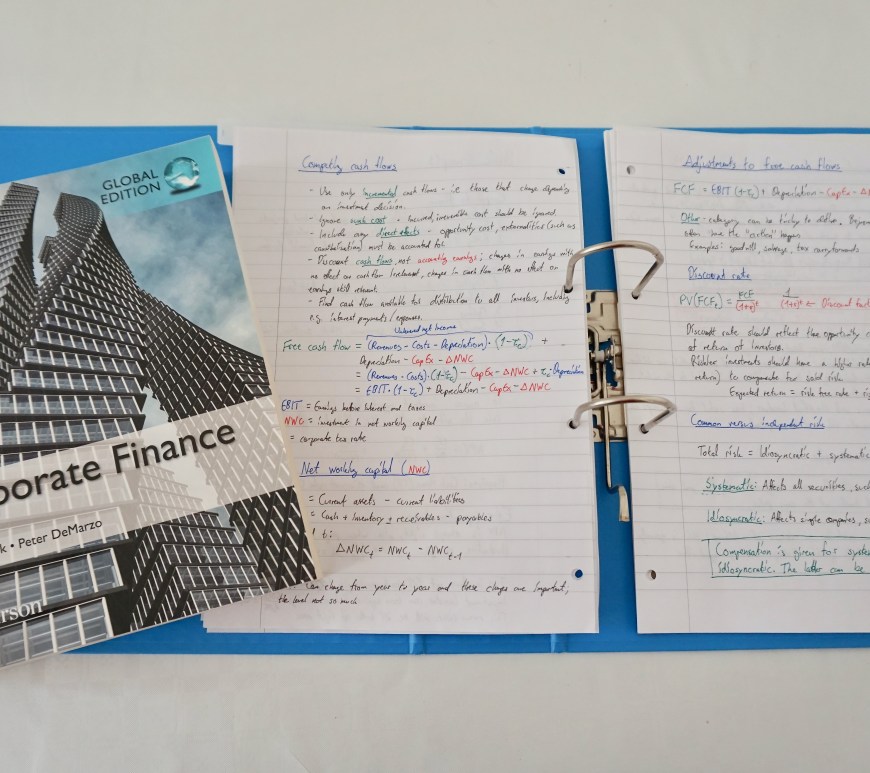 GLOBAL
EDITION
porate Finance
k • Peter DeMarzo
rson
Computing cash flows
- Use only incremental cash flows - i.e. those that change depending
on an investment decision.
- Ignore sunk cost - Incurred, irreversible cost should be ignored.
- Include any direct effects - opportunity cost, externalities (such as
cannibalisation) must be accounted for.
- Discount cash flows, not accounting earnings; changes in earnings with
no effect on cash flow irrelevant, changes in cash flow with no effect on
earnings still relevant.
- Find cash flow available for distribution to all investors, including
e.g. interest payments / expenses.
Unlevered net income
Free cash flow = (Revenues - Costs - Depreciation) · (1 - τc) +
Depreciation - CapEx - ΔNWC
= (Revenues - Costs) · (1 - τc) - CapEx - ΔNWC + τc · Depreciation
= EBIT · (1 - τc) + Depreciation - CapEx - ΔNWC
EBIT = Earnings before interest and taxes
NWC = Investment in net working capital
= corporate tax rate
Net working capital (NWC)
= Current assets - current liabilities
= Cash + inventory + receivables - payables
t:
ΔNWCt = NWCt - NWCt-1
can change from year to year and these changes are important,
the level not so much
Adjustments to free cash flows
FCF = EBIT (1-τc) + Depreciation - CapEx - ΔN
Other - category can be fairly to other.
often, use the "other" 
Examples: goodwill, salvage, tax carryforwards
Discount rate
PV(FCFt) = FCF / (1+r)^t 1 / (1+r)^t ← Discount fact
Discount rate should reflect the opportunity c
of return of investors.
Riskier investments should have a higher rate
return) to compensate for said risk.
Expected return = risk free rate + ris
Common versus independent risk
Total risk = Idiosyncratic + systematic
Systematic: Affects all securities, such
Idiosyncratic: Affects single companies, su
Compensation is given for system
idiosyncratic. The latter can be